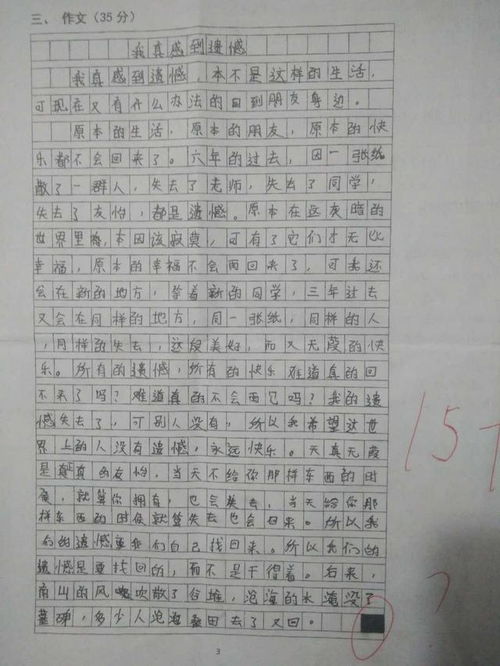 三、作文(35分)
我真感到遗憾
我真感到遗憾,本不是这样的生活,
可现在又有什么办法的回到朋友身边。
原本的生活,原本的朋友,原本的快
乐都不会回来了。六年的过去,因一张纸
散了一群人,失去了老师,失去了同学,
失去了友怡,都是遗憾。原本在这灰暗的
世界里,本因该寂寞,可有了它们才无比
幸福,原本的幸福不会再回来了,可未还
会在新的地方,等着新的同学,三年过去
又会在同样的地方,同一张纸,同样的人
,同样的失去,这段美好,而又无葭的快
乐。所有的遗憾,所有的快乐 难道真的回
不来了吗?难道真的不会再见吗?我的遗
憾失去了,可别人没有,所以我希望这世
界上的人没有遗憾,永远快乐。天真无葭
是真的友怡,当天不给你那样东西的时
候,就算你拥有,也会失去,当天给你那
样东西的时候就算失去也会归来。所以我
们的遗憾要我们自己找回来。所以我们的
遗憾是要找回的,而不是干得着。后来,
南山的风吹散了谷堆,沧海的水淹没了
墓碑,多少人沧海桑田去了又回。
157
3